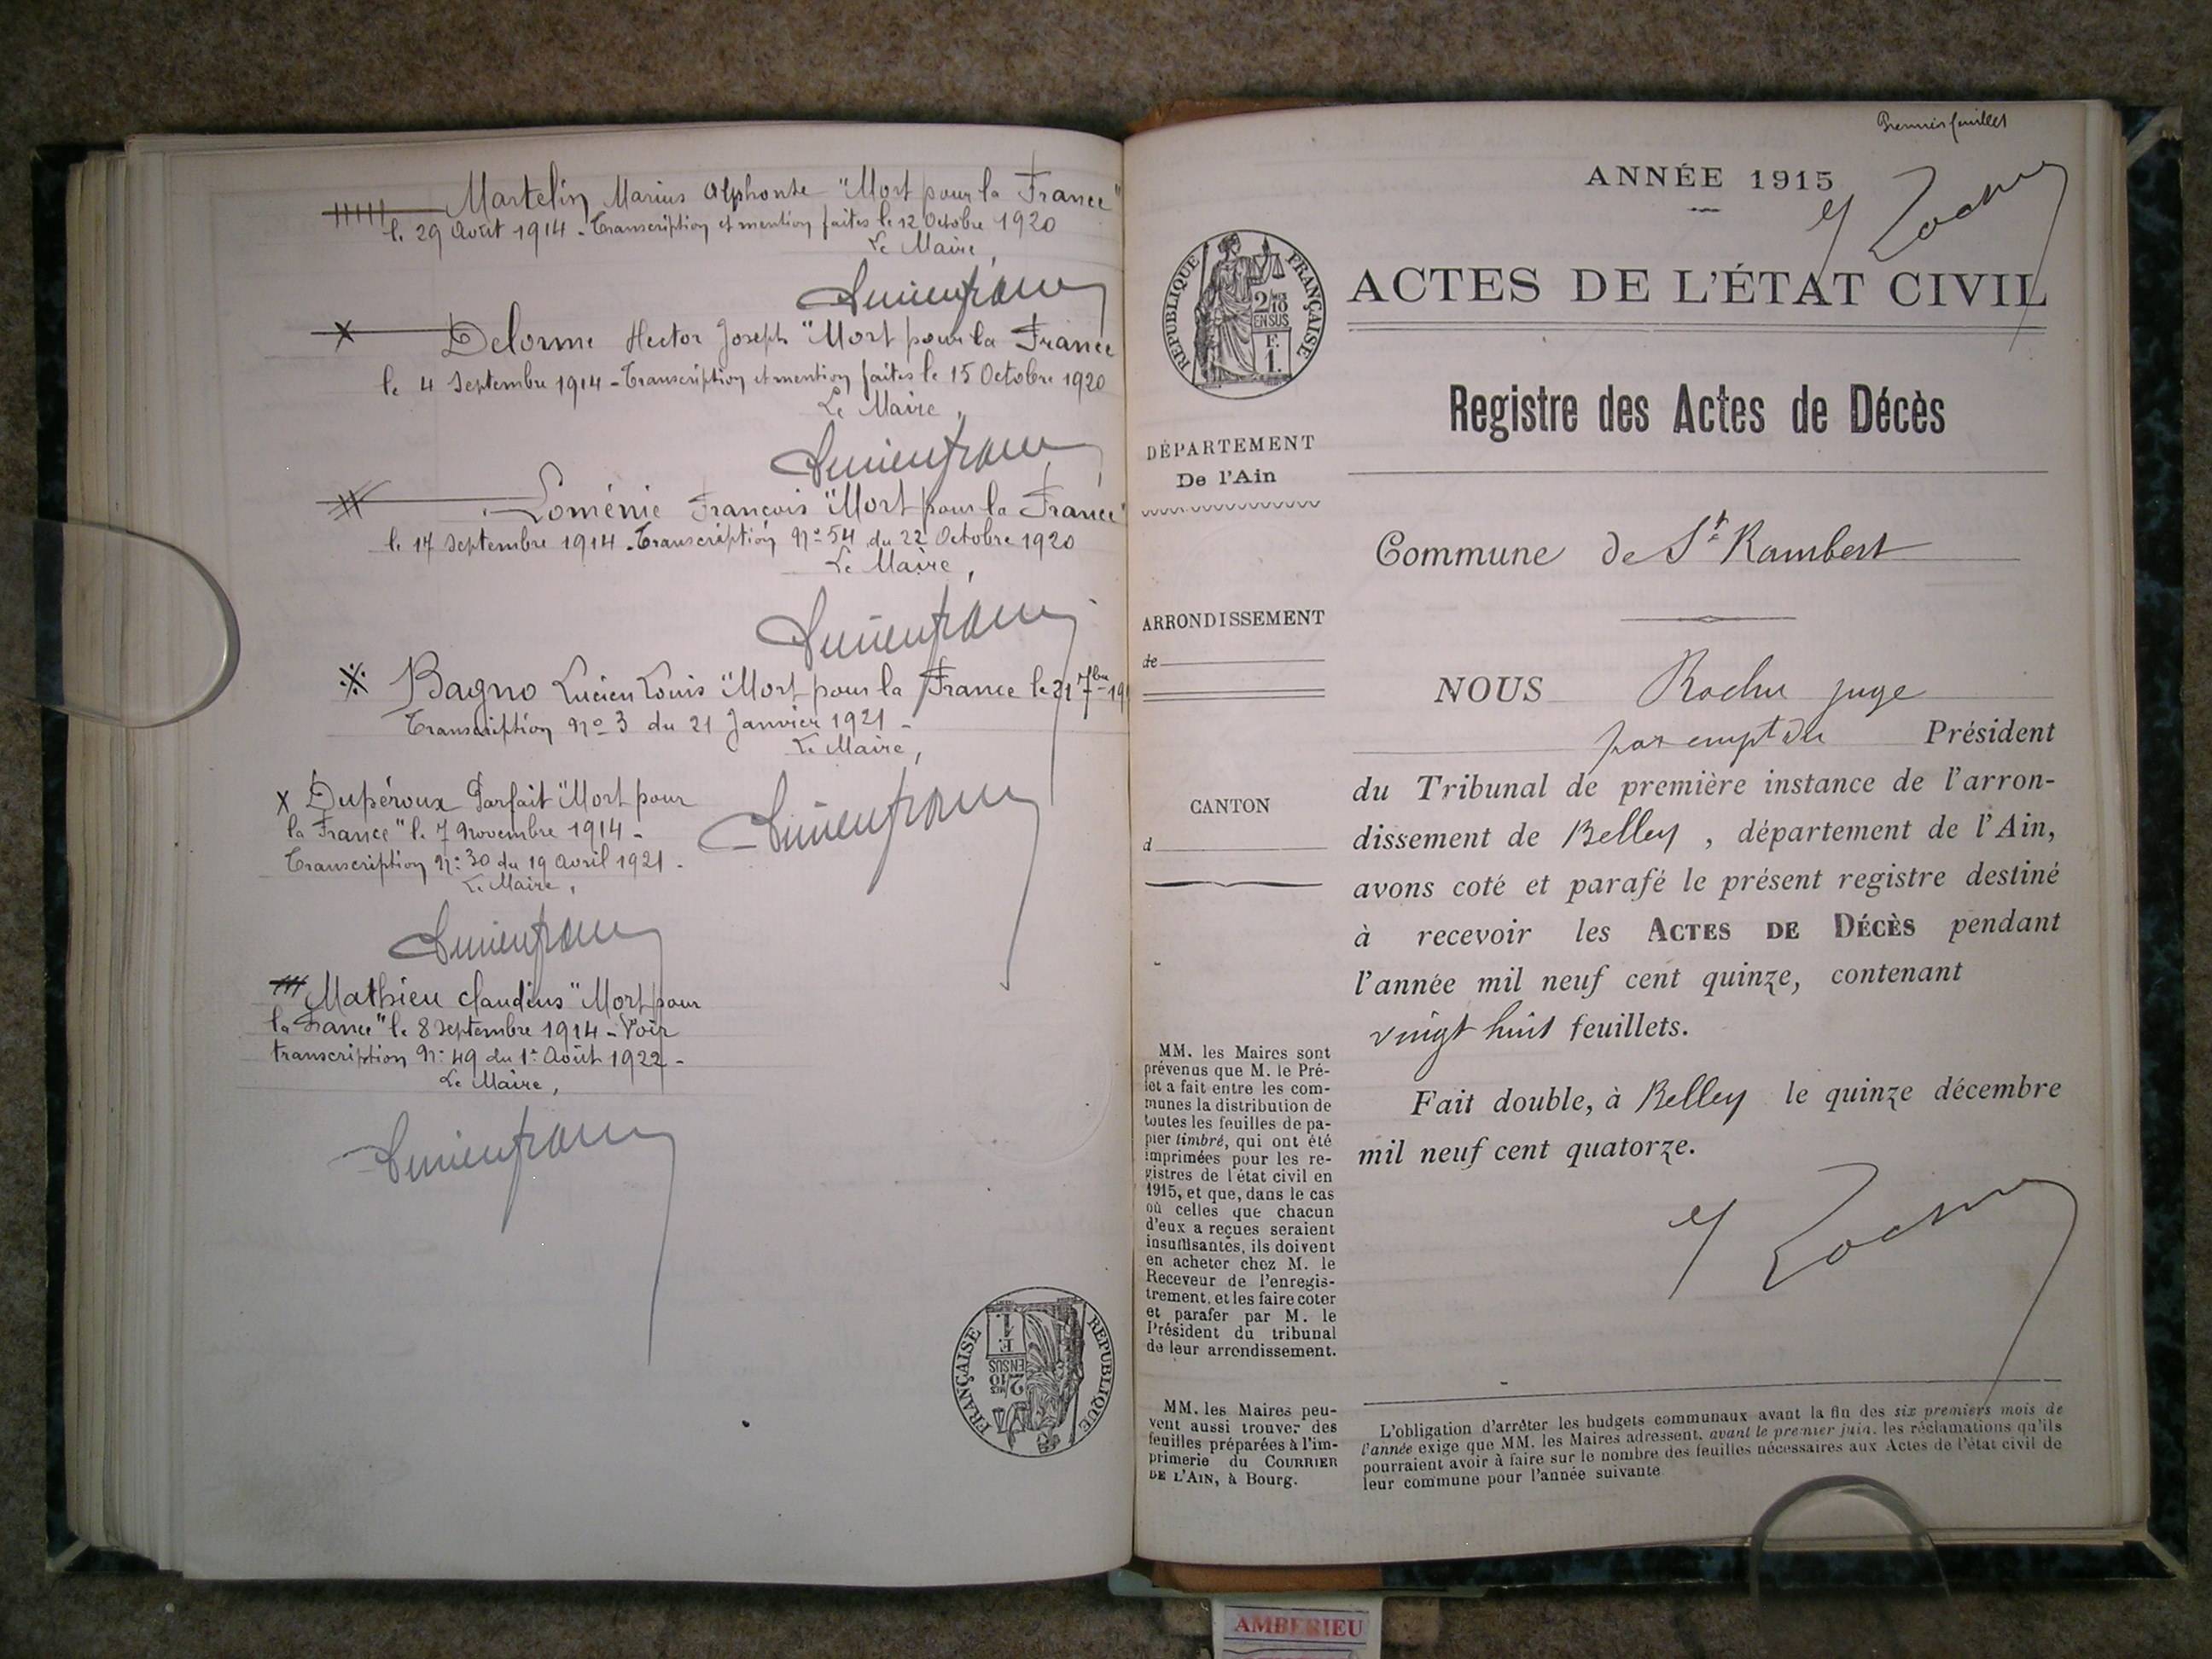 Martelin Marius Alphonse "Mort pour la France"
le 29 Août 1914 - Transcription et mention faites le 12 Octobre 1920
Le Maire,
Delorme Hector Joseph "Mort pour la France
le 4 Septembre 1914 - Transcription et mention faites le 15 Octobre 1920
Le Maire,
Loménie François "Mort pour la France"
le 17 Septembre 1914 - Transcription N° 54 du 22 Octobre 1920
Le Maire,
Bagno Lucien Louis "Mort pour la France le 21 7bre 19
Transcription N° 3 du 21 Janvier 1921 -
Le Maire,
Dupéroux Parfait "Mort pour
la France" le 7 Novembre 1914 -
Transcription N° 30 du 19 Avril 1921 -
Le Maire,
Mathieu Claudius "Mort pour
la France" le 8 Septembre 1914 - Voir
transcription N° 49 du 1er Août 1922 -
Le Maire,
RÉPUBLIQUE FRANÇAISE
2/10 EN SUS
F.
1.
Premier feuillet
ANNÉE 1915
RÉPUBLIQUE FRANÇAISE
2/10
EN SUS
F.
1.
ACTES DE L'ÉTAT CIVIL
Registre des Actes de Décès
DÉPARTEMENT
De l'Ain
Commune de St Rambert
ARRONDISSEMENT
de
CANTON
d
NOUS Roche juge
par empt du Président
du Tribunal de première instance de l'arron-
dissement de Belley, département de l'Ain,
avons coté et parafé le présent registre destiné
à recevoir les ACTES DE DÉCÈS pendant
l'année mil neuf cent quinze, contenant
vingt huit feuillets.
Fait double, à Belley le quinze décembre
mil neuf cent quatorze.
MM. les Maires sont
prévenus que M. le Pré-
fet a fait entre les com-
munes la distribution de
toutes les feuilles de pa-
pier timbré, qui ont été
imprimées pour les re-
gistres de l'état civil en
1915, et que, dans le cas
où celles que chacun
d'eux a reçues seraient
insuffisantes, ils doivent
en acheter chez M. le
Receveur de l'enregis-
trement, et les faire coter
et parafer par M. le
Président du tribunal
de leur arrondissement.
MM. les Maires peu-
vent aussi trouver des
feuilles préparées à l'im-
primerie du COURRIER
DE L'AIN, à Bourg.
L'obligation d'arrêter les budgets communaux avant la fin des six premiers mois de
l'année exige que MM. les Maires adressent, avant le premier juin, les réclamations qu'ils
pourraient avoir à faire sur le nombre des feuilles nécessaires aux Actes de l'état civil de
leur commune pour l'année suivante
AMBERIEU